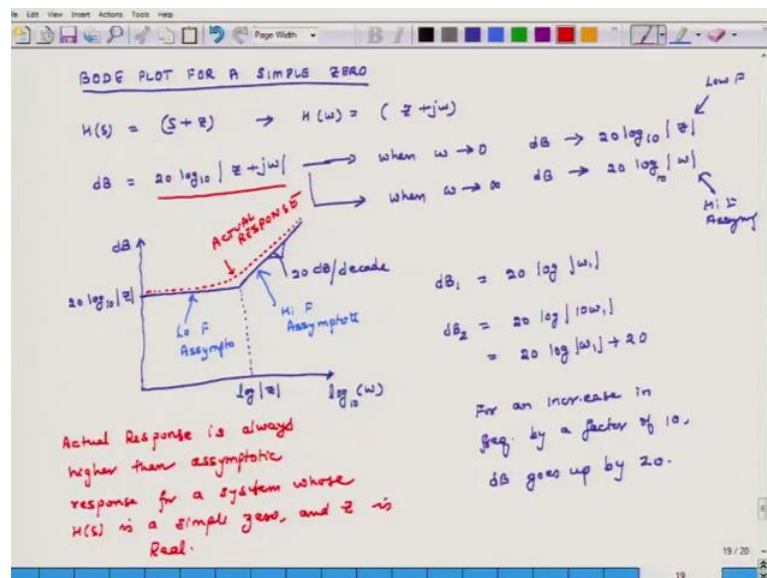 File Edit View Insert Actions Tools Help
Page Width
BODE PLOT FOR A SIMPLE ZERO
H(s) = (s+z) → H(ω) = (z+jω)
Low F
dB = 20 log10 |z+jω|
when ω→0 dB → 20 log10 |z|
when ω→∞ dB → 20 log10 |ω|
Hi F
Assymp
dB
ACTUAL
RESPONSE
20 dB/decade
20 log10|z|
Lo F
Assympto
Hi F
Assymptote
log|z|
log10(ω)
dB1 = 20 log |ω1|
dB2 = 20 log |10ω1|
= 20 log |ω1| + 20
For an increase in
freq. by a factor of 10,
dB goes up by 20.
Actual Response is always
higher than assymptotic
response for a system whose
H(s) is a simple zero, and z is
Real.
19 / 20
19